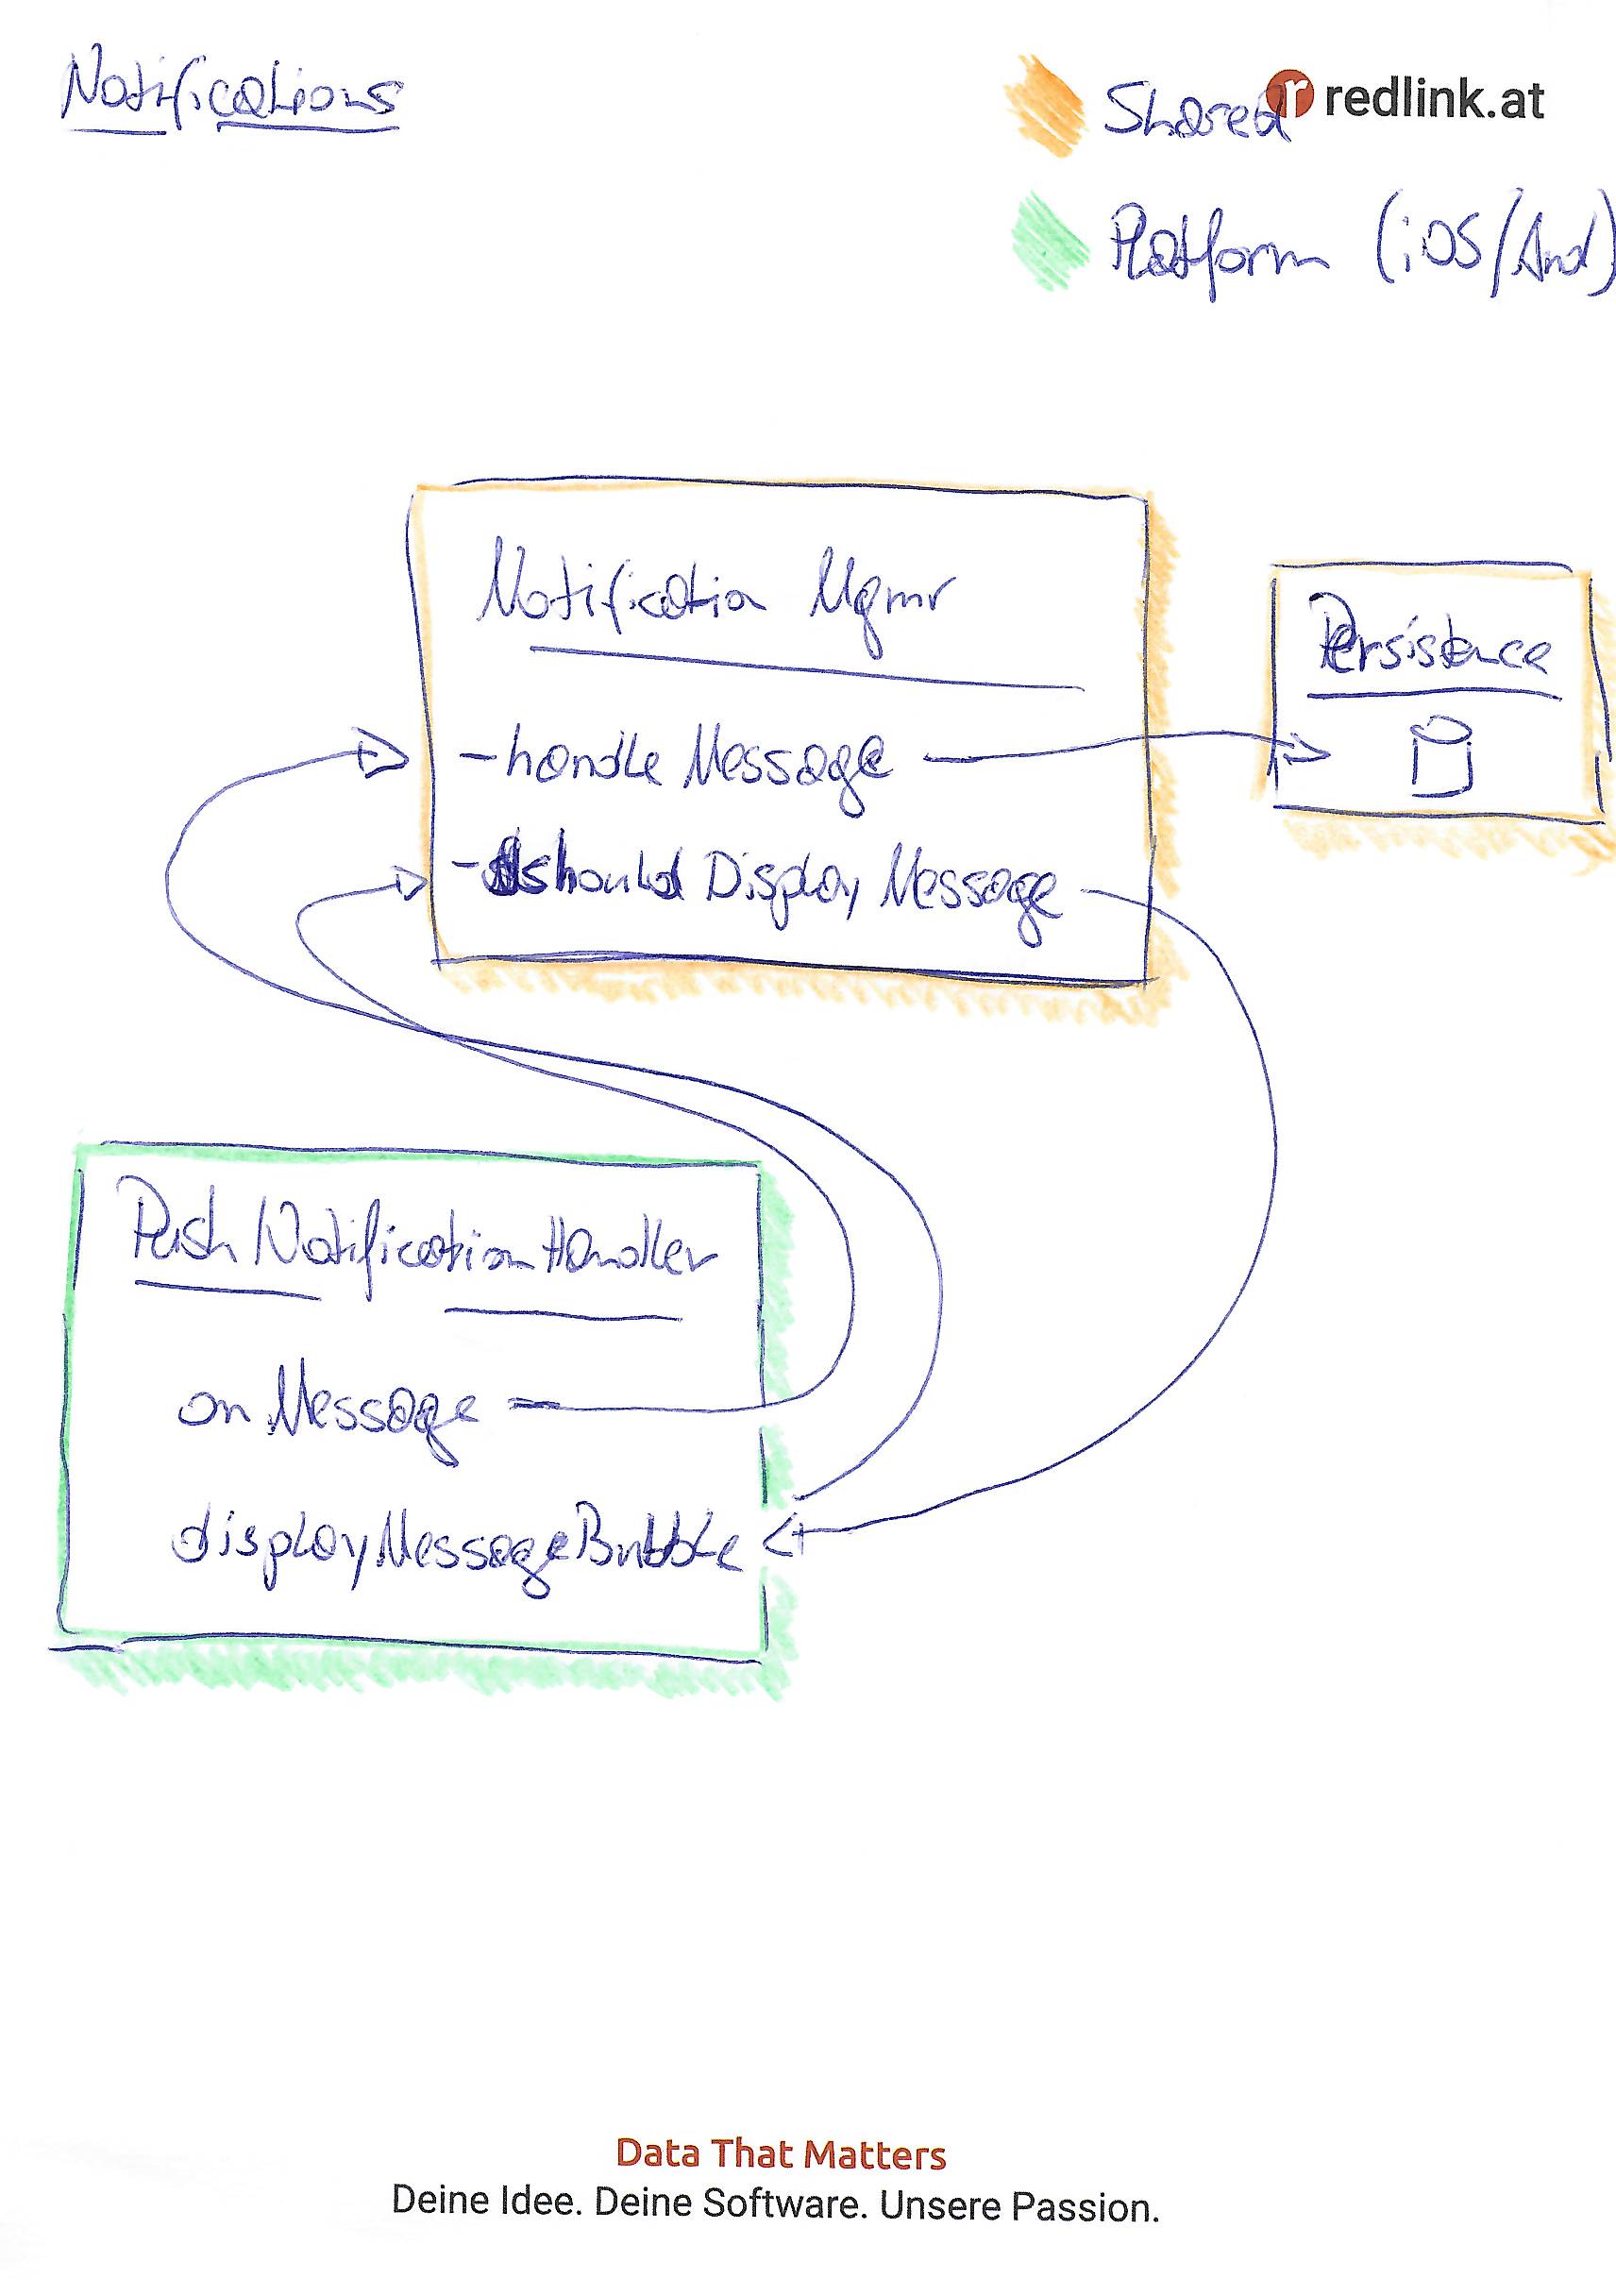 Notifications
Shared
redlink.at
Platform (iOS/And)
Notification Mgmr
Persistence
- handle Message
- should Display Message
Push Notification Handler
on Message
displayMessageBubble
Data That Matters
Deine Idee. Deine Software. Unsere Passion.